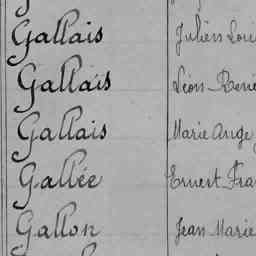 Gallais Julien Loui
Gallais Léon René
Gallais Marie Ange
Gallée Ernest Fra
Gallon Jean Marie